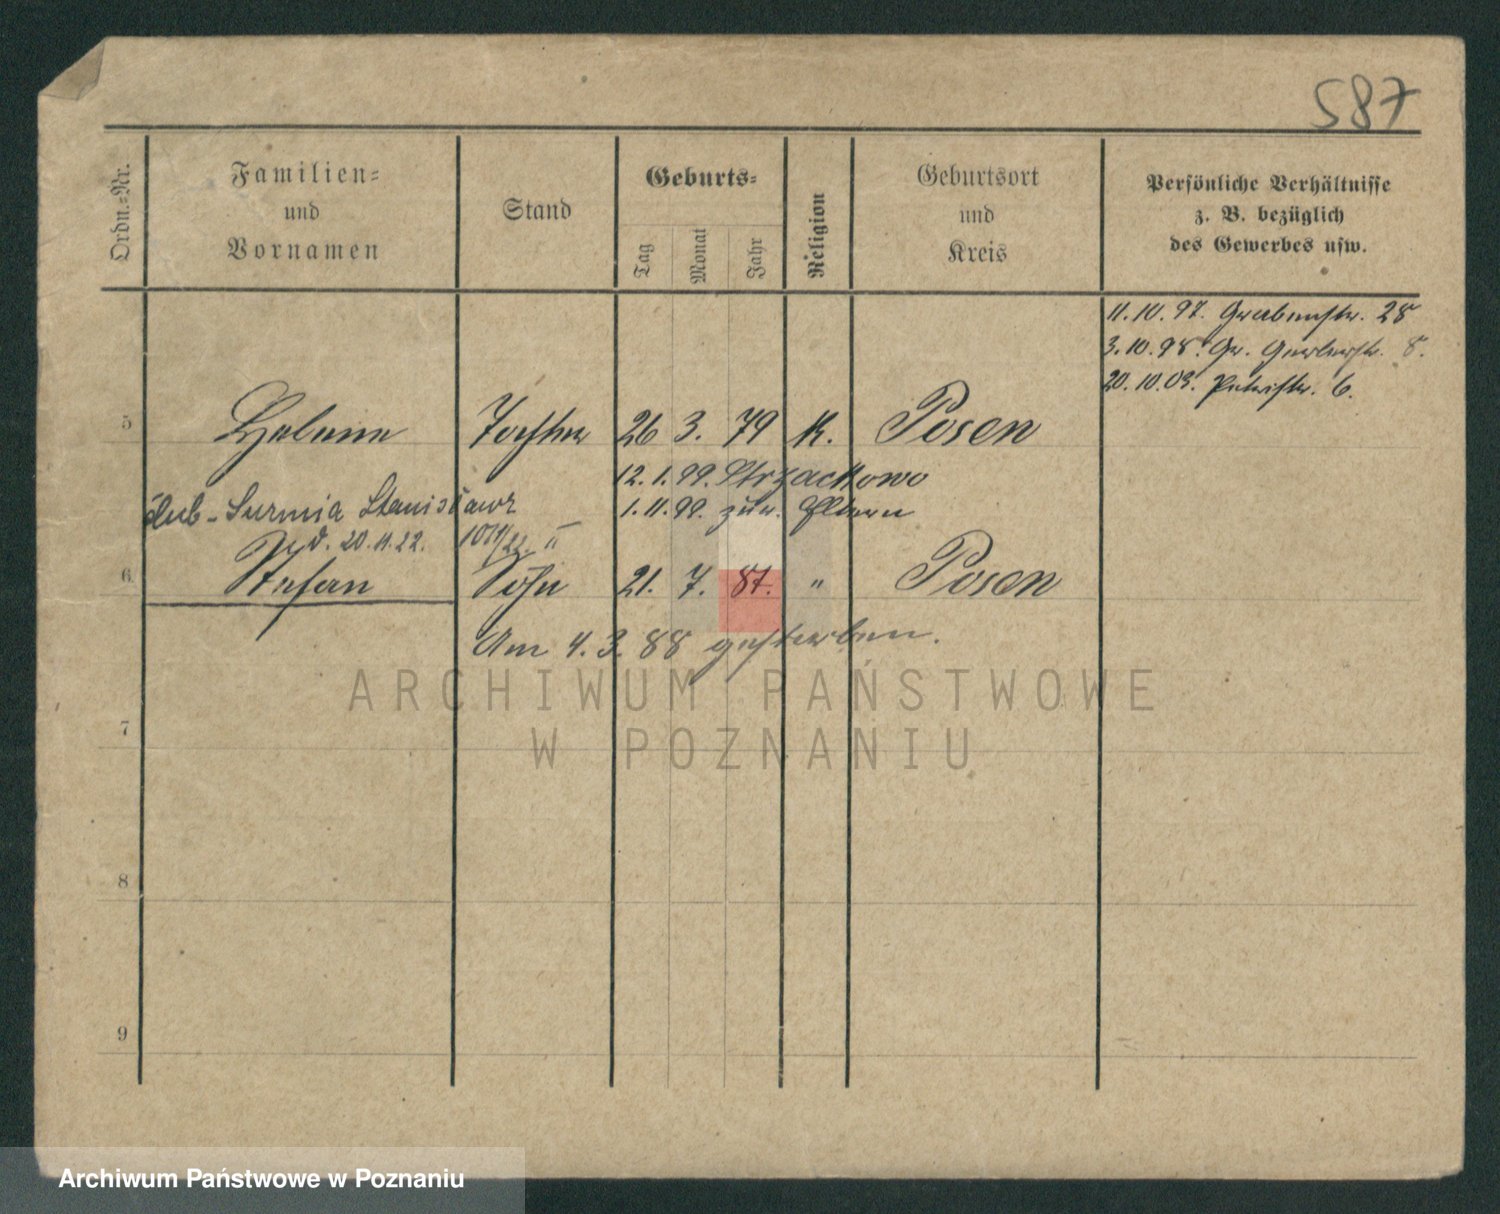 587
Ordn.-Nr.
Familien-
und
Vornamen
Stand
Geburts-
Tag
Monat
Jahr
Religion
Geburtsort
und
Kreis
Persönliche Verhältnisse
z. B. bezüglich
des Gewerbes usw.
11.10.97. Grabenstr. 25
3.10.98. Gr. Gerberstr. 8.
20.10.03. Petristr. 6.
5 Helene Tochter 26 3. 79 K. Posen
12.1.99. Strzalkowo
1.11.99. zur. Eltern
ślub - Surmia Stanisławr
d. 20.11.22. 1011/22. II
6 Stefan Sohn 21. 7. 87. " Posen
Am 4.3.88 gestorben.
ARCHIWUM PAŃSTWOWE
W POZNANIU
7
8
9
Archiwum Państwowe w Poznaniu